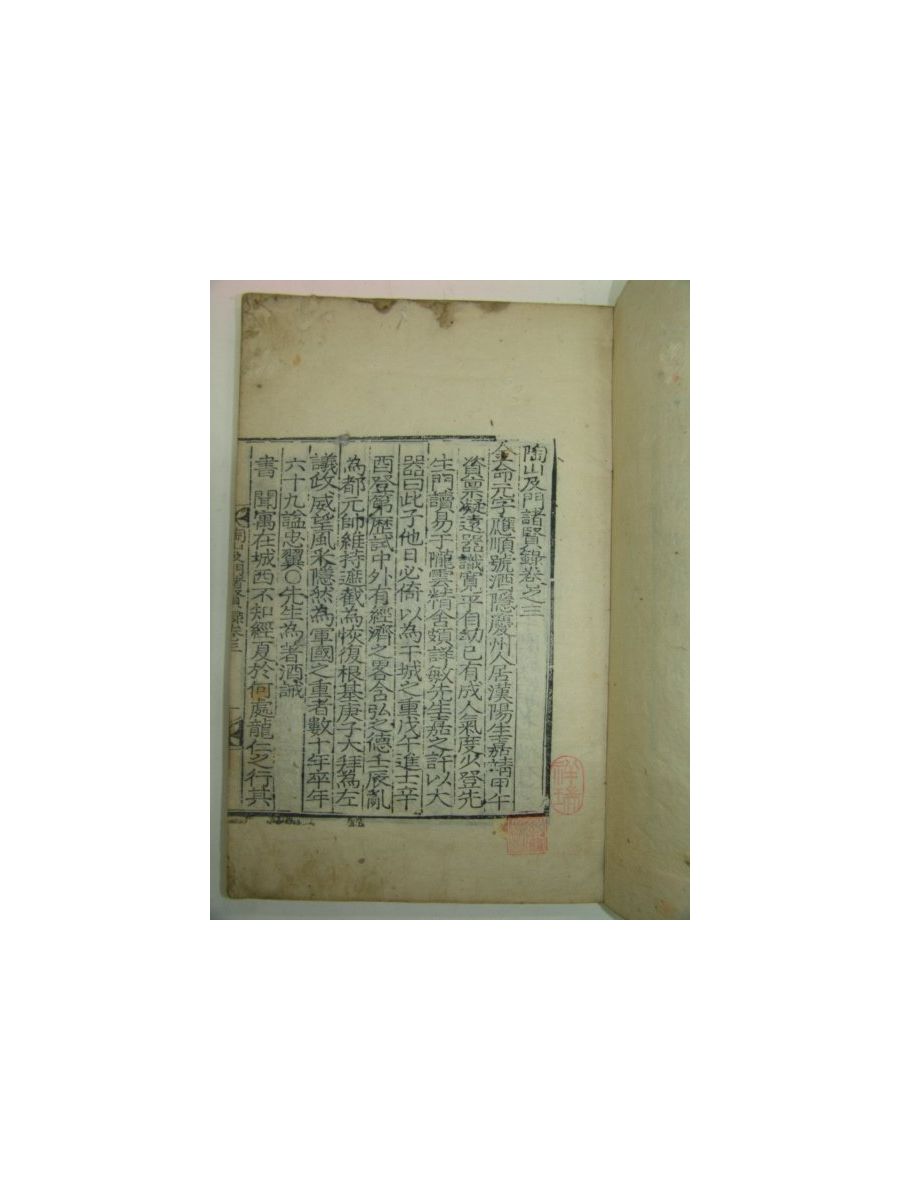 陶山及門諸賢錄卷之三
金命元字應順號酒隱慶州人居漢陽生嘉靖甲午
資稟凝遠器識寬平自幼已有成人氣度少登先
生門讀易于隴雲精舍頗詳敏先生嘉之許以大
器曰此子他日必倚以為干城之重戊午進士辛
酉登第歷試中外有經濟之畧含弘之德壬辰亂
為都元帥維持遮截為恢復根基庚子大拜為左
議政威望風采隱然為軍國之重者數十年卒年
六十九諡忠翼〇先生為著酒誡
書 聞寓在城西不知經夏於何處龍仁之行其
陶山及門諸賢錄卷三